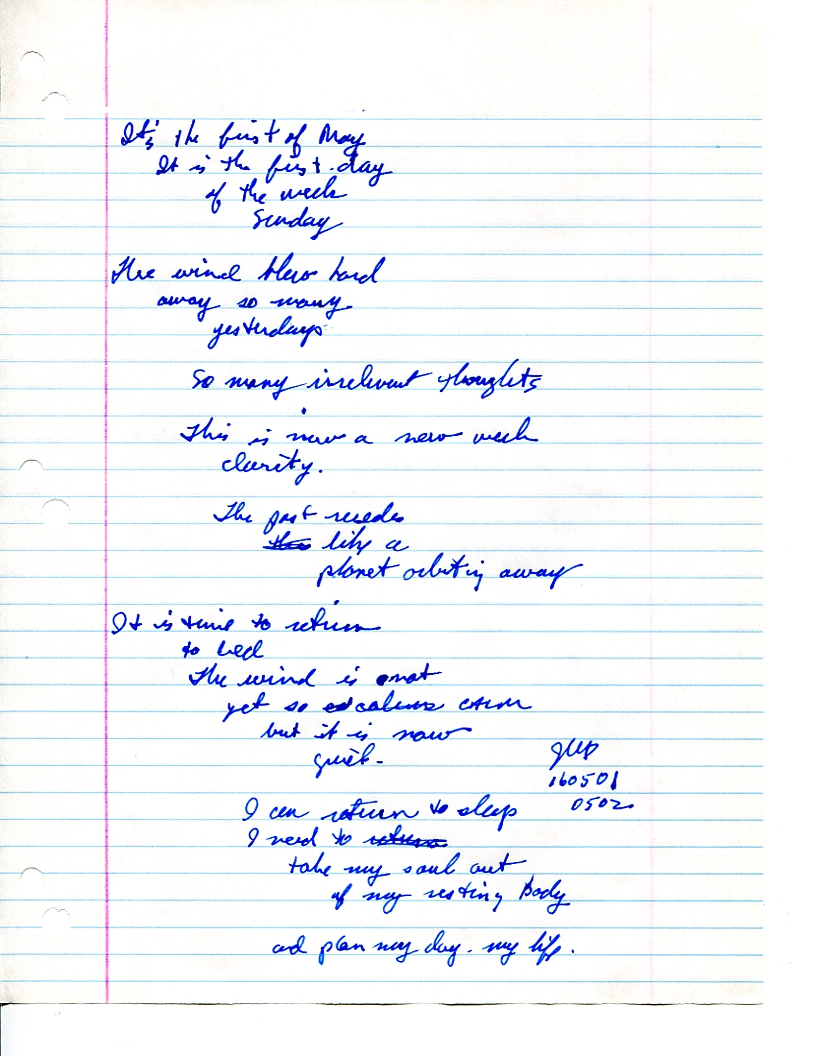 It's the first of May
It is the first day
of the week
Sunday
The wind blew hard
away so many
yesterdays
So many irrelevant thoughts
This is now a new week
clarity.
The past recedes
the like a
planet orbiting away
It is time to return
to bed
The wind is not
yet so calm CALM
but it is now
quiet.
I can return to sleep
I need to return
take my soul out
of my resting Body
and plan my day. my life.
160501
0502